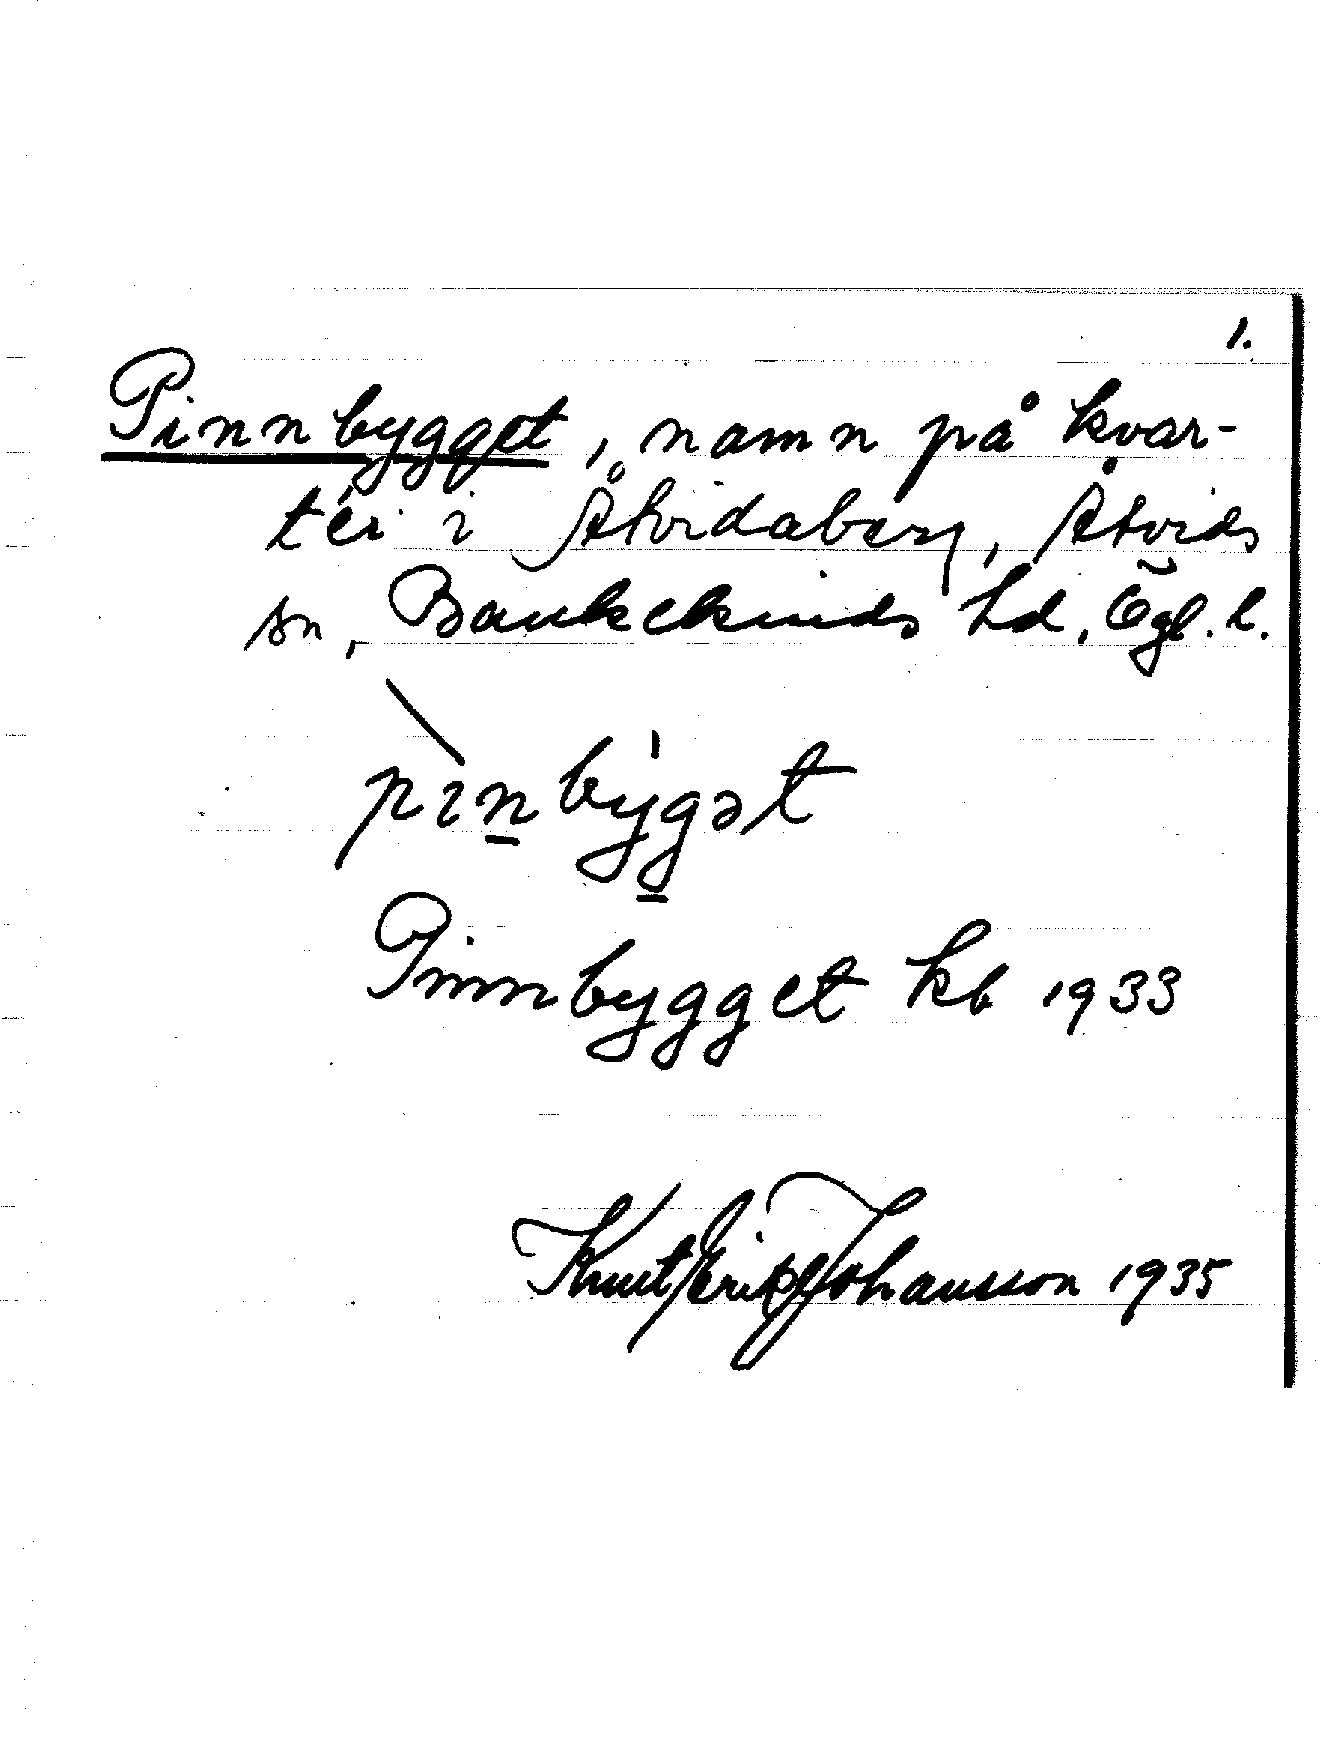 1.
Pinnbygget, namn på kvar-
tér i Åtvidaberg, Åtvids
sn, Bankekinds hd, Ögl. l.
pìnby̍gət
Pinnbygget kb 1933
Knut Erik Johansson 1935